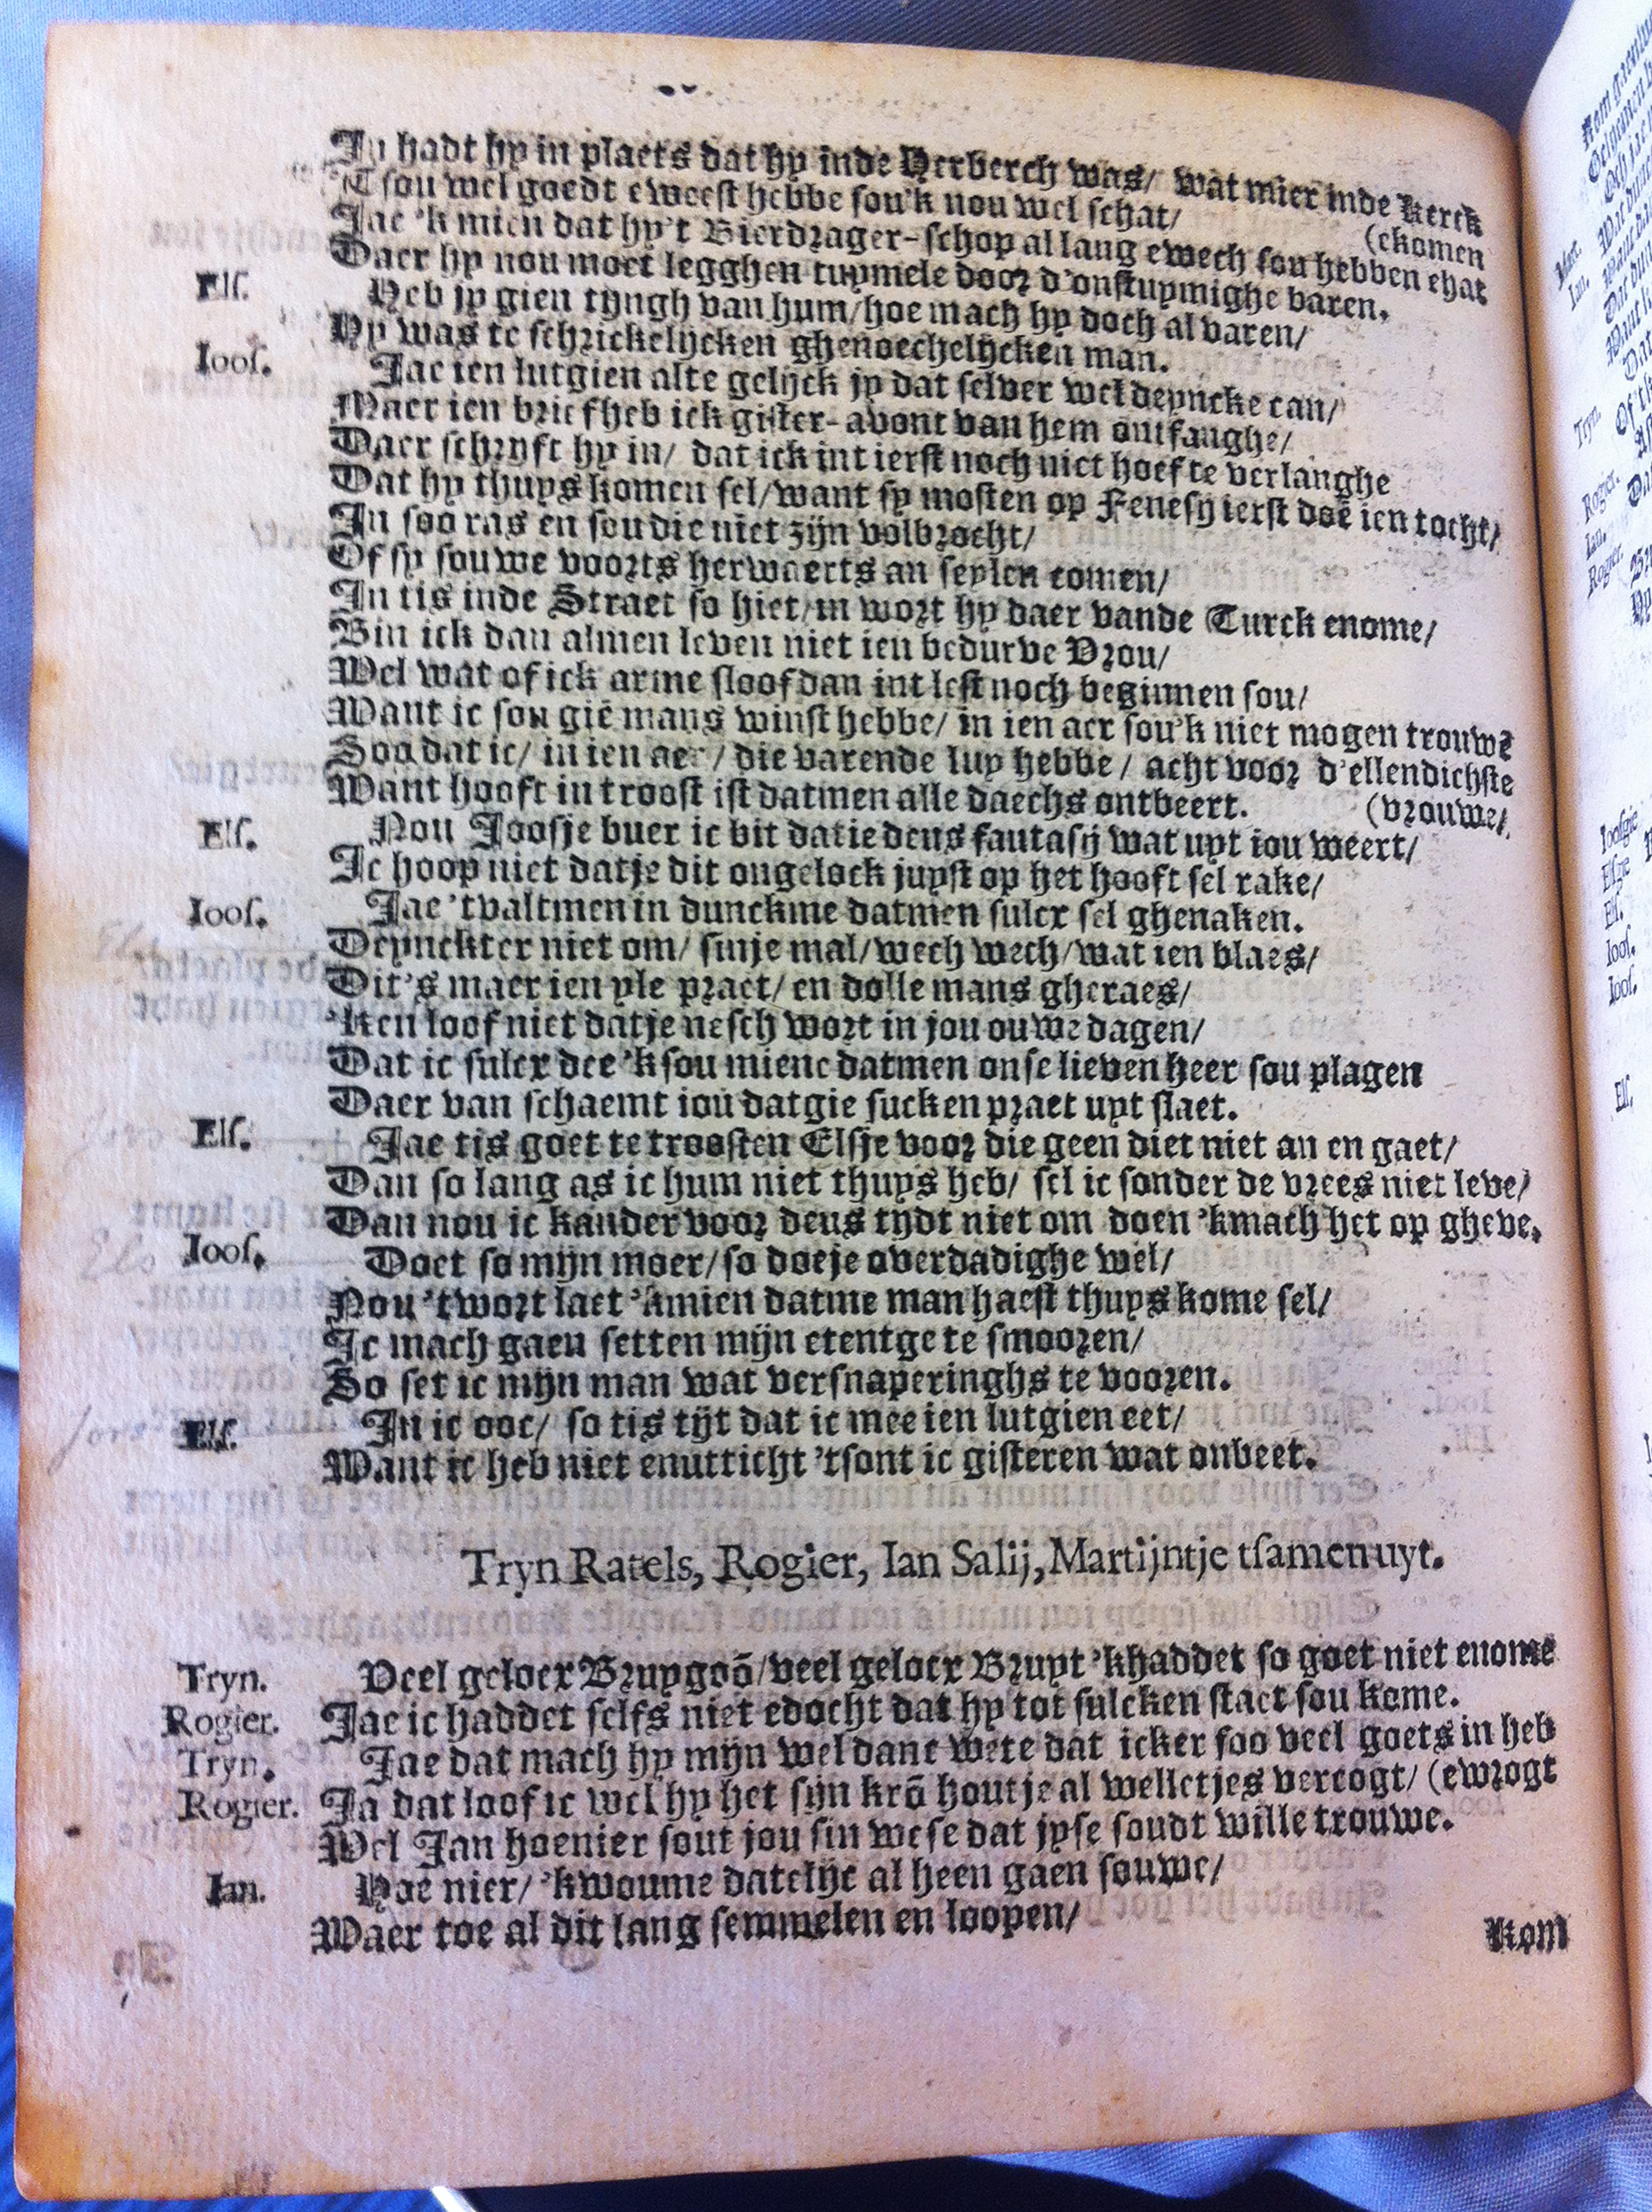 In hadt hy in plaets dat hy inde Herberch was/ wat mier inde Kerck
T sou wel goedt eweest hebbe sou'k nou wel schat/ (ekomen
Jae 'k mien dat hy't Bierdrager-schop al lang ewech sou hebben ehat
Daer hy nou moet legghen tuymele door d'onstuymighe baren.
Els. Heb jy gien tyngh van hum/hoe mach hy doch al varen/
Hy was te schrickelijcken ghenoechelijcken man.
Ioos. Jae ien lutgien alte gelijck jy dat selver wel deyncke can/
Maer ien brief heb ick gister-avont van hem ontfanghe/
Daer schryft hy in/ dat ick int ierst noch niet hoef te verlanghe
Dat hy thuys komen sel/want sy mosten op Fenesy ierst doē ien tocht/
In soo ras en sou die niet zijn volbrocht/
Of sy souwe voorts herwaerts an seylen comen/
In tis inde Straet so hiet/in wort hy daer vande Turck enome/
Bin ick dan almen leven niet ien bedurve Vrou/
Wel wat of ick arme sloof dan int lest noch beginnen sou/
Want ic sou giē mans winst hebbe/ in ien aer sou'k niet mogen trouwē
Soo dat ic/ in ien aer/ die varende luy hebbe/ acht voor d'ellendichste
Want hooft in troost ist datmen alle daechs ontbeert. (vrouwe/
Els. Nou Joosje buer ic bit datje deus fantasij wat uyt iou weert/
Ic hoop niet datje dit ongelock juyst op het hooft sel rake/
Ioos. Jae 'tvaltmen in dunckme datmen sulcx sel ghenaken.
Deynckter niet om/ sinje mal/wech wech/wat ien blaes/
Dit's maer ien yle praet/ en dolle mans gheraes/
'Ken loof niet datje nesch wort in jou ouwe dagen/
Dat ic sulcx dee 'k sou miene datmen onse lieven heer sou plagen
Daer van schaemt iou datgie sucken praet uyt slaet.
Els. Jae tis goet te troosten Elsje voor die geen diet niet an en gaet/
Dan so lang as ic hum niet thuys heb/ sel ic sonder de vrees niet leve/
Dan nou ic kander voor deus tydt niet om doen 'kmach het op gheve.
Ioos. Doet so mijn moer/so doeje overdadighe wel/
Nou 't wort laet 'kmien datme man haest thuys kome sel/
Ic mach gaen setten mijn etentge te smooren/
So set ic mijn man wat versnaperinghs te vooren.
Els. In ic ooc/ so tis tijt dat ic mee ien lutgien eet/
Want ic heb niet enutticht 'tsont ic gisteren wat onbeet.
Tryn Ratels, Rogier, Ian Salij, Martijntje tsamen uyt.
Tryn. Veel gelocx Bruygoō/veel gelocx Bruyt 'khaddet so goet niet enome
Rogier. Jae ic haddet selfs niet edocht dat hy tot sulcken staet sou kome.
Tryn. Jae dat mach hy mijn wel danc wete dat icker soo veel goets in heb
Rogier. Ja dat loof ic wel hy het sijn krō houtje al welletjes vercogt/ (ewrogt
Wel Jan hoenier sout jou sin wese dat jyse soudt wille trouwe.
Ian. Hoe nier/ 'kwoume datelijc al heen gaen souwe/
Waer toe al dit lang semmelen en loopen/
Kom